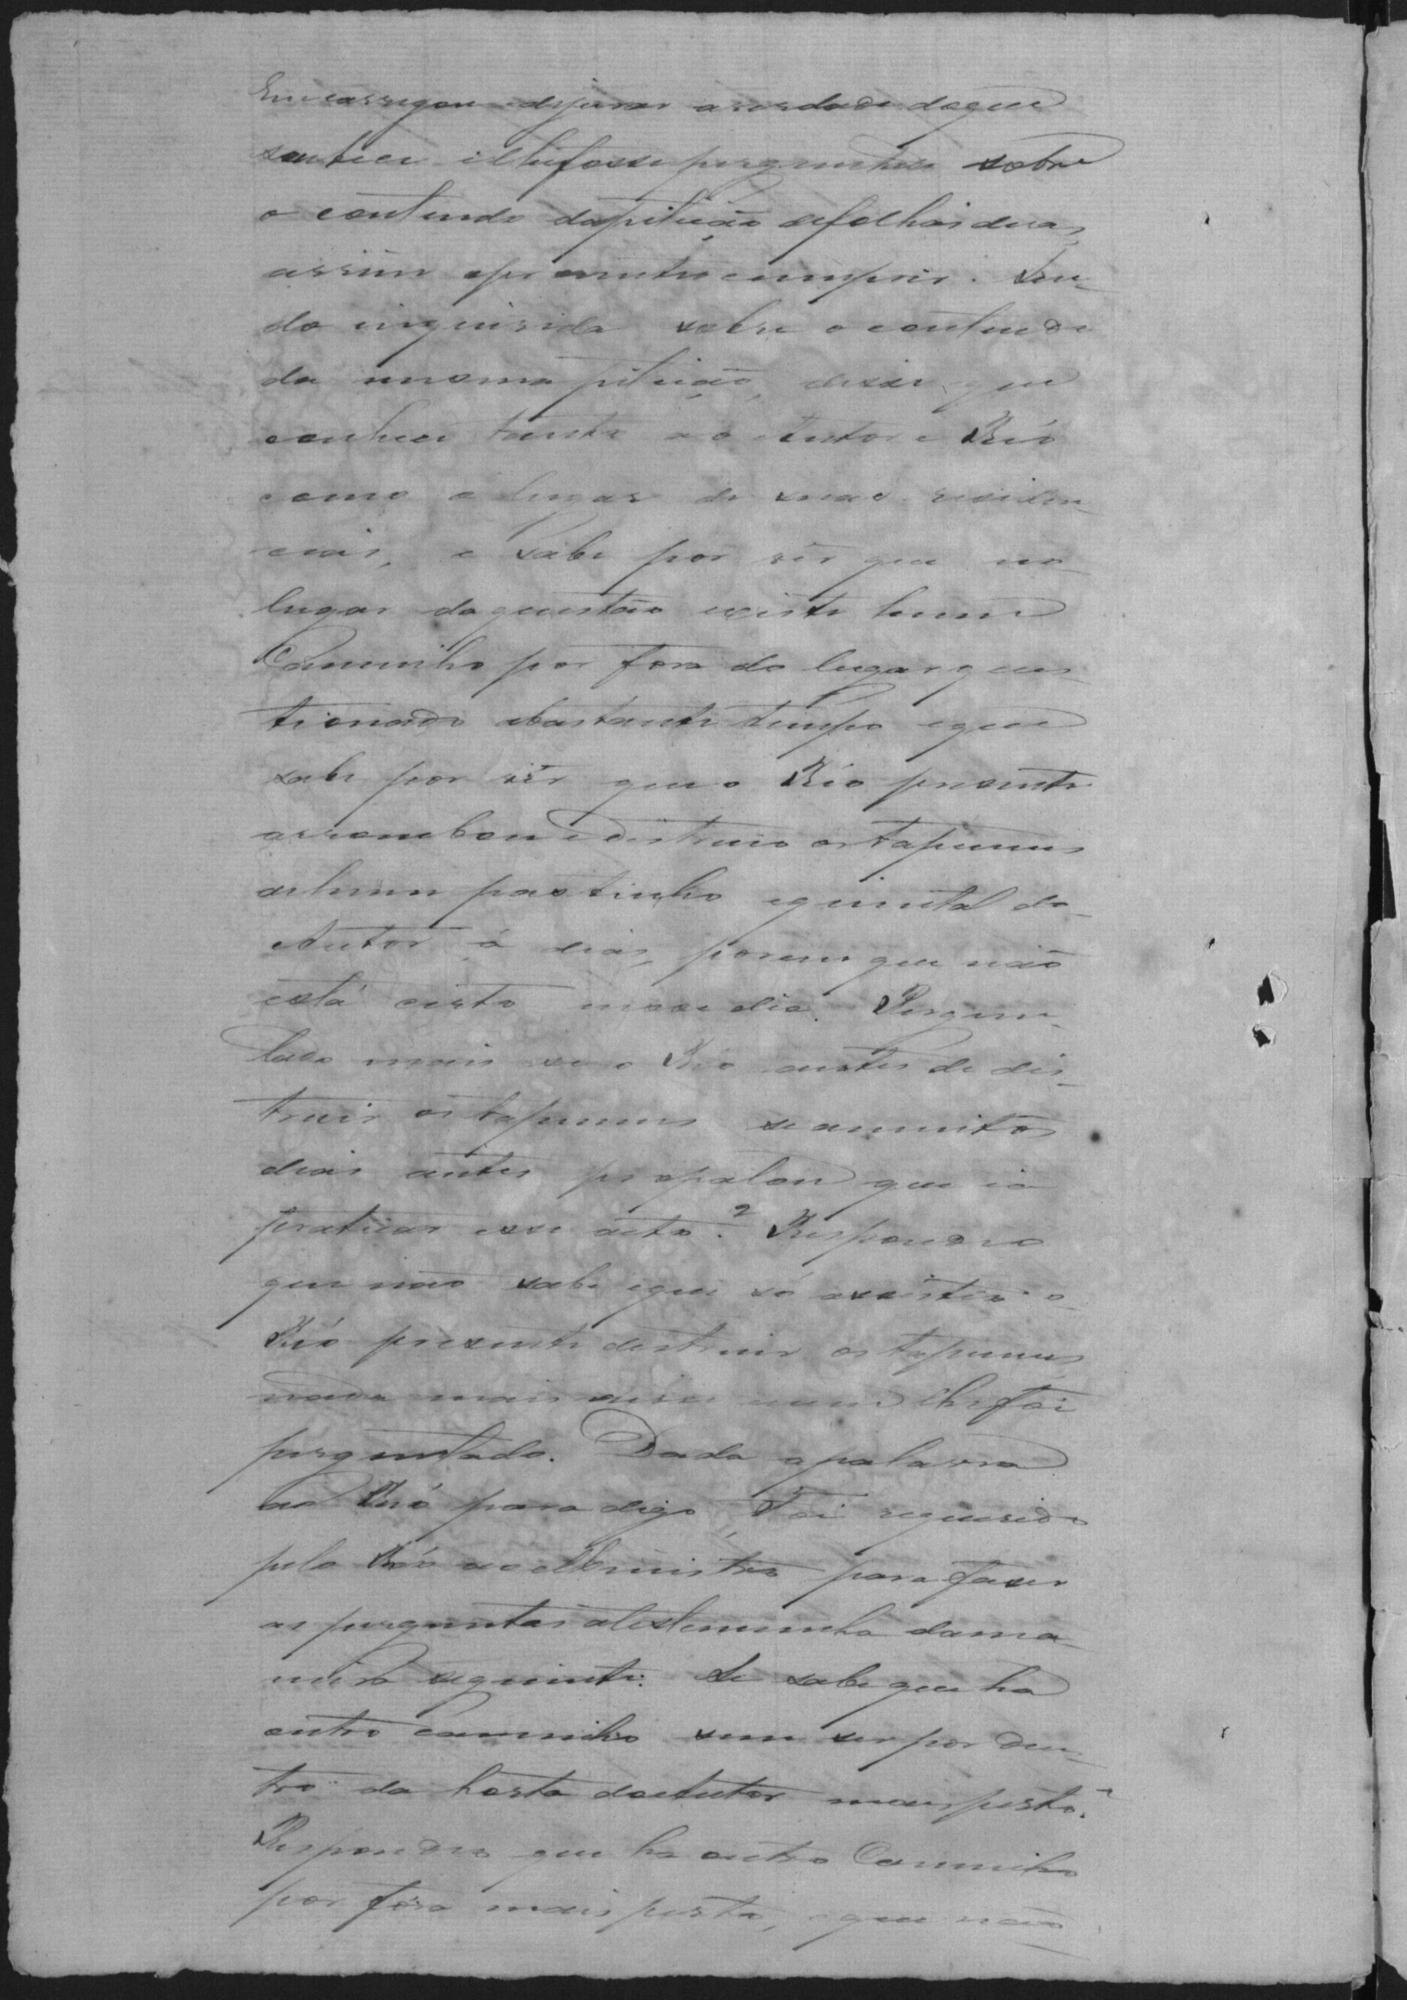 Encarregou dejurar averdade doque
soubece elhefosse perguntado sobre
o contendo dapitição defolhas duas,
assim oprometeu cumprir. Sen-
do inquirida sobre o contendo
da mesma pitição, disse que
conhece tanto ao Autor e Réo
como o lugar de suas residen-
cias, e sabe por vêr que no
lugar daquestão existe hum
Caminho por fora do lugar ques-
tionado abastante tempo eque
sabe por vêr que o Réo presente
arrombou edestruio os tapumes
dehum pastinho equintal do
Autor á dias, porem que não
está certo nesse dia. Pergun-
tado mais se o Réo antes de des-
truir os tapumes se a muitos
dias antes propalou que ia
praticar esse acto? Respondeo
que não sabe eque só assistio o
Réo presente destruir os tapumes,
nada mais disse nem lhe foi
perguntado. Dada apalavra
ao Reó para digo Foi requerido
pelo Réo ao Ministro para fazer
as perguntas atestemunha dama-
neira seguinte: Se sabe que ha
outro caminho sem ser por den-
tro da horta doAutor mais perto?
Respondeo que ha outro Caminho
por fóra mais perto, eque não